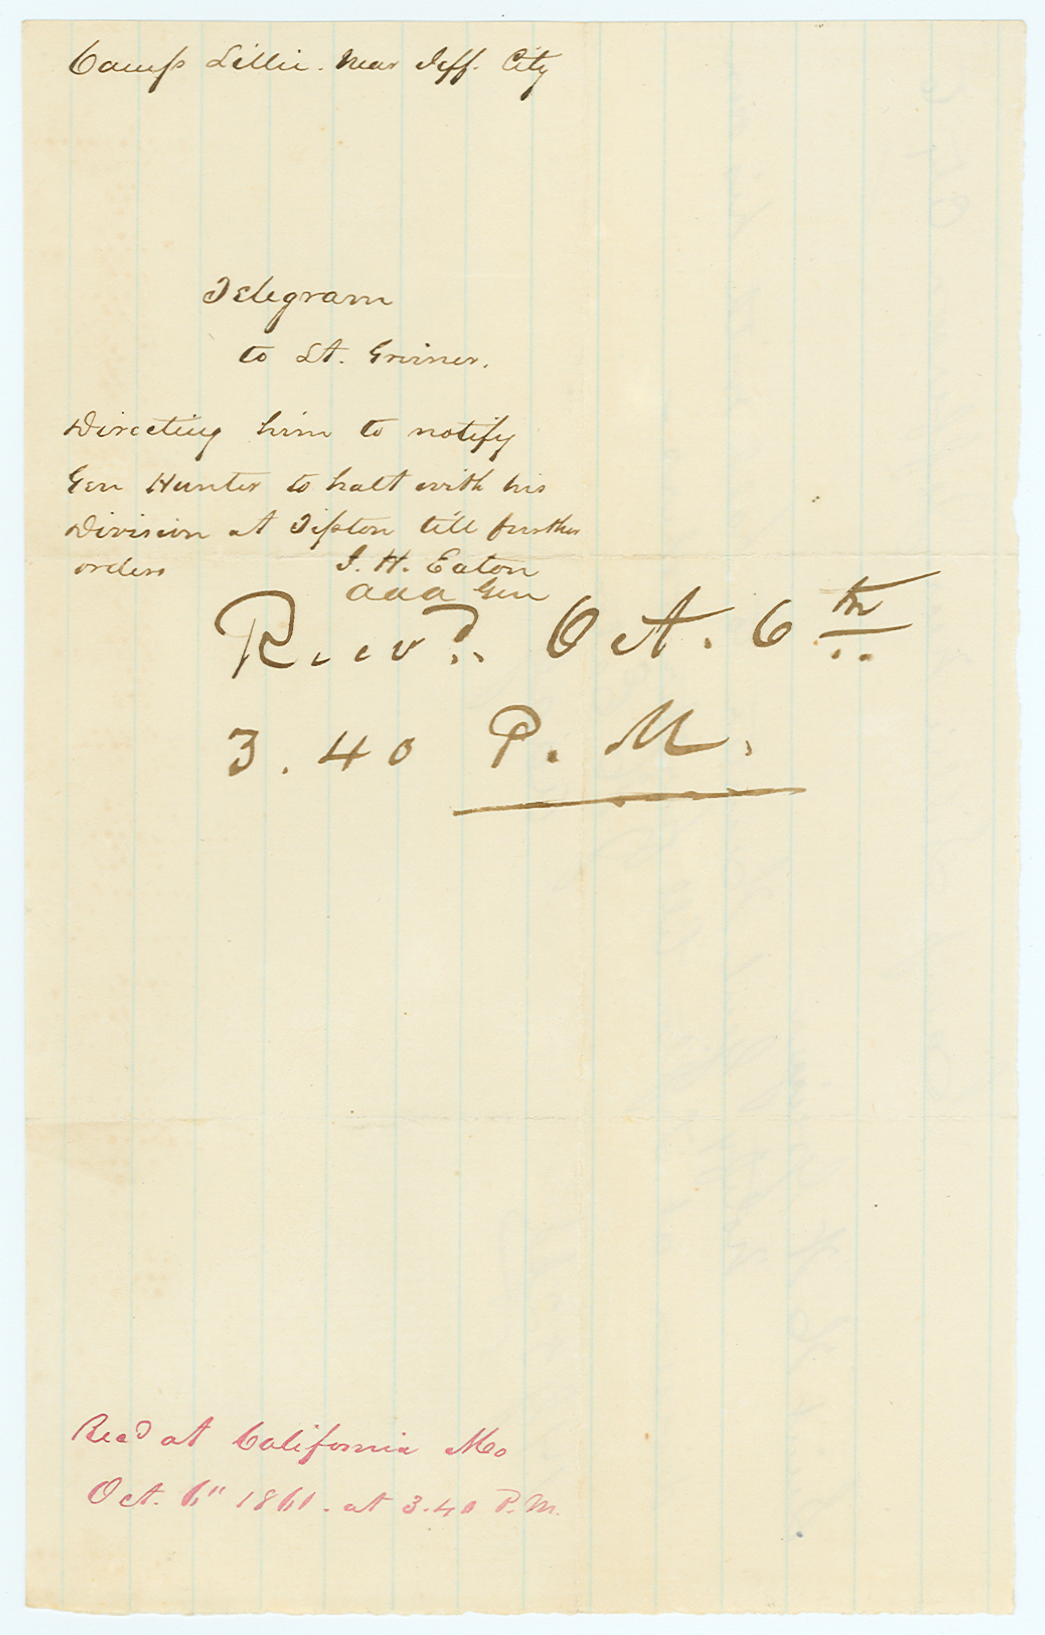 Camp Lillie. Near Jeff. City
Telegram
to Lt. Greiner.
Directing him to notify
Gen Hunter to halt with his
Division at Tipton till further
orders
J. H. Eaton
aaa Gen
Recvd. Oct. 6th
3.40 P. M.
Recd at California Mo
Oct. 6" 1861. at 3.40 P.M.